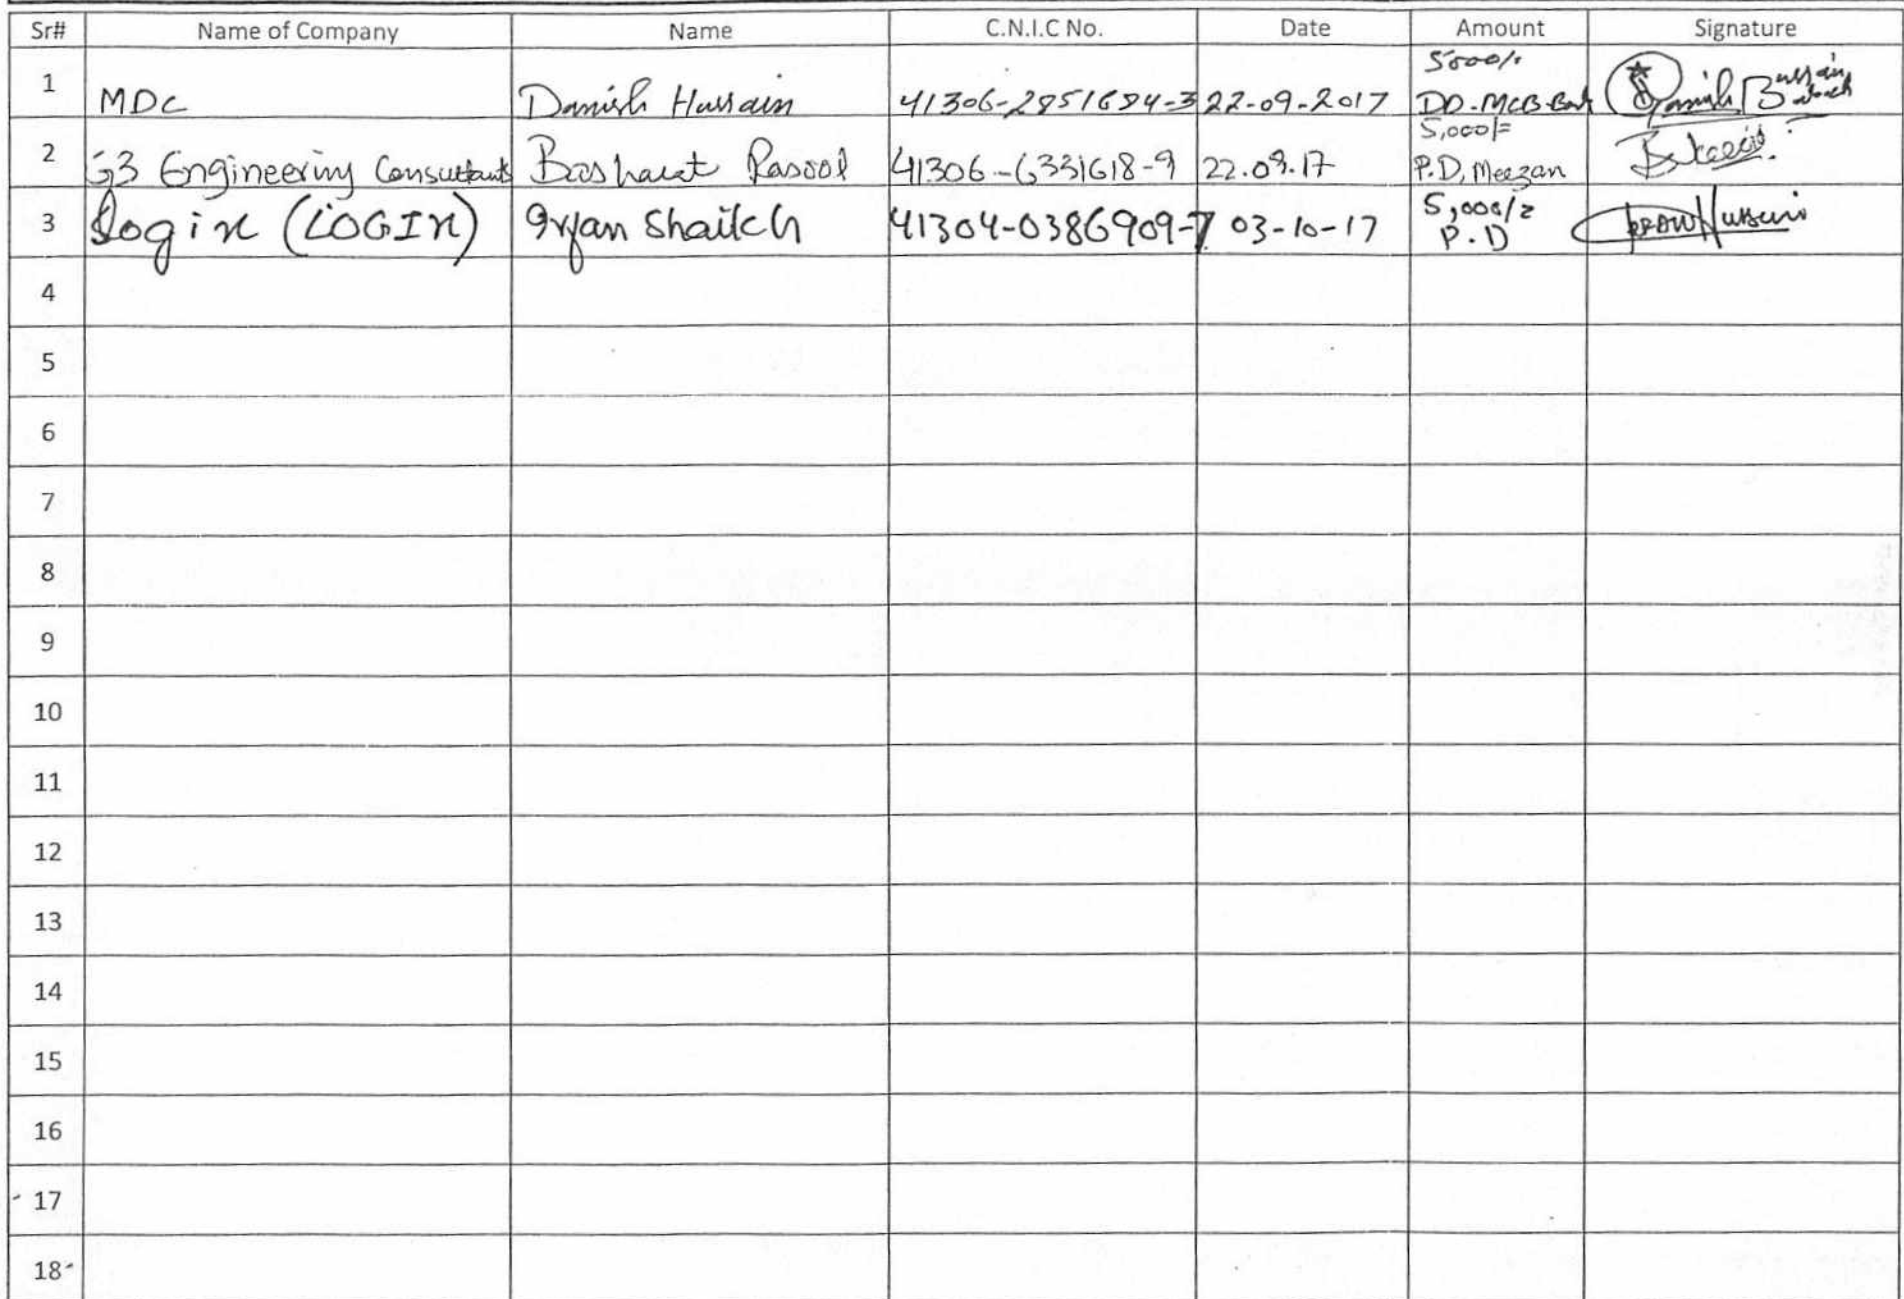 Sr# Name of Company Name C.N.I.C No. Date Amount Signature
5000/-
1 MDC Danish Hussain 41306-2851684-3 22-09-2017 DD-MCB-Bank
5,000/=
2 G3 Engineering Consultants Basharat Rasool 41306-6331618-9 22.09.17 P.D, Meezan
5,000/=
3 Login (LOGIN) Irfan Shaikh 41304-0386909-7 03-10-17 P.D
4
5
6
7
8
9
10
11
12
13
14
15
16
17
18